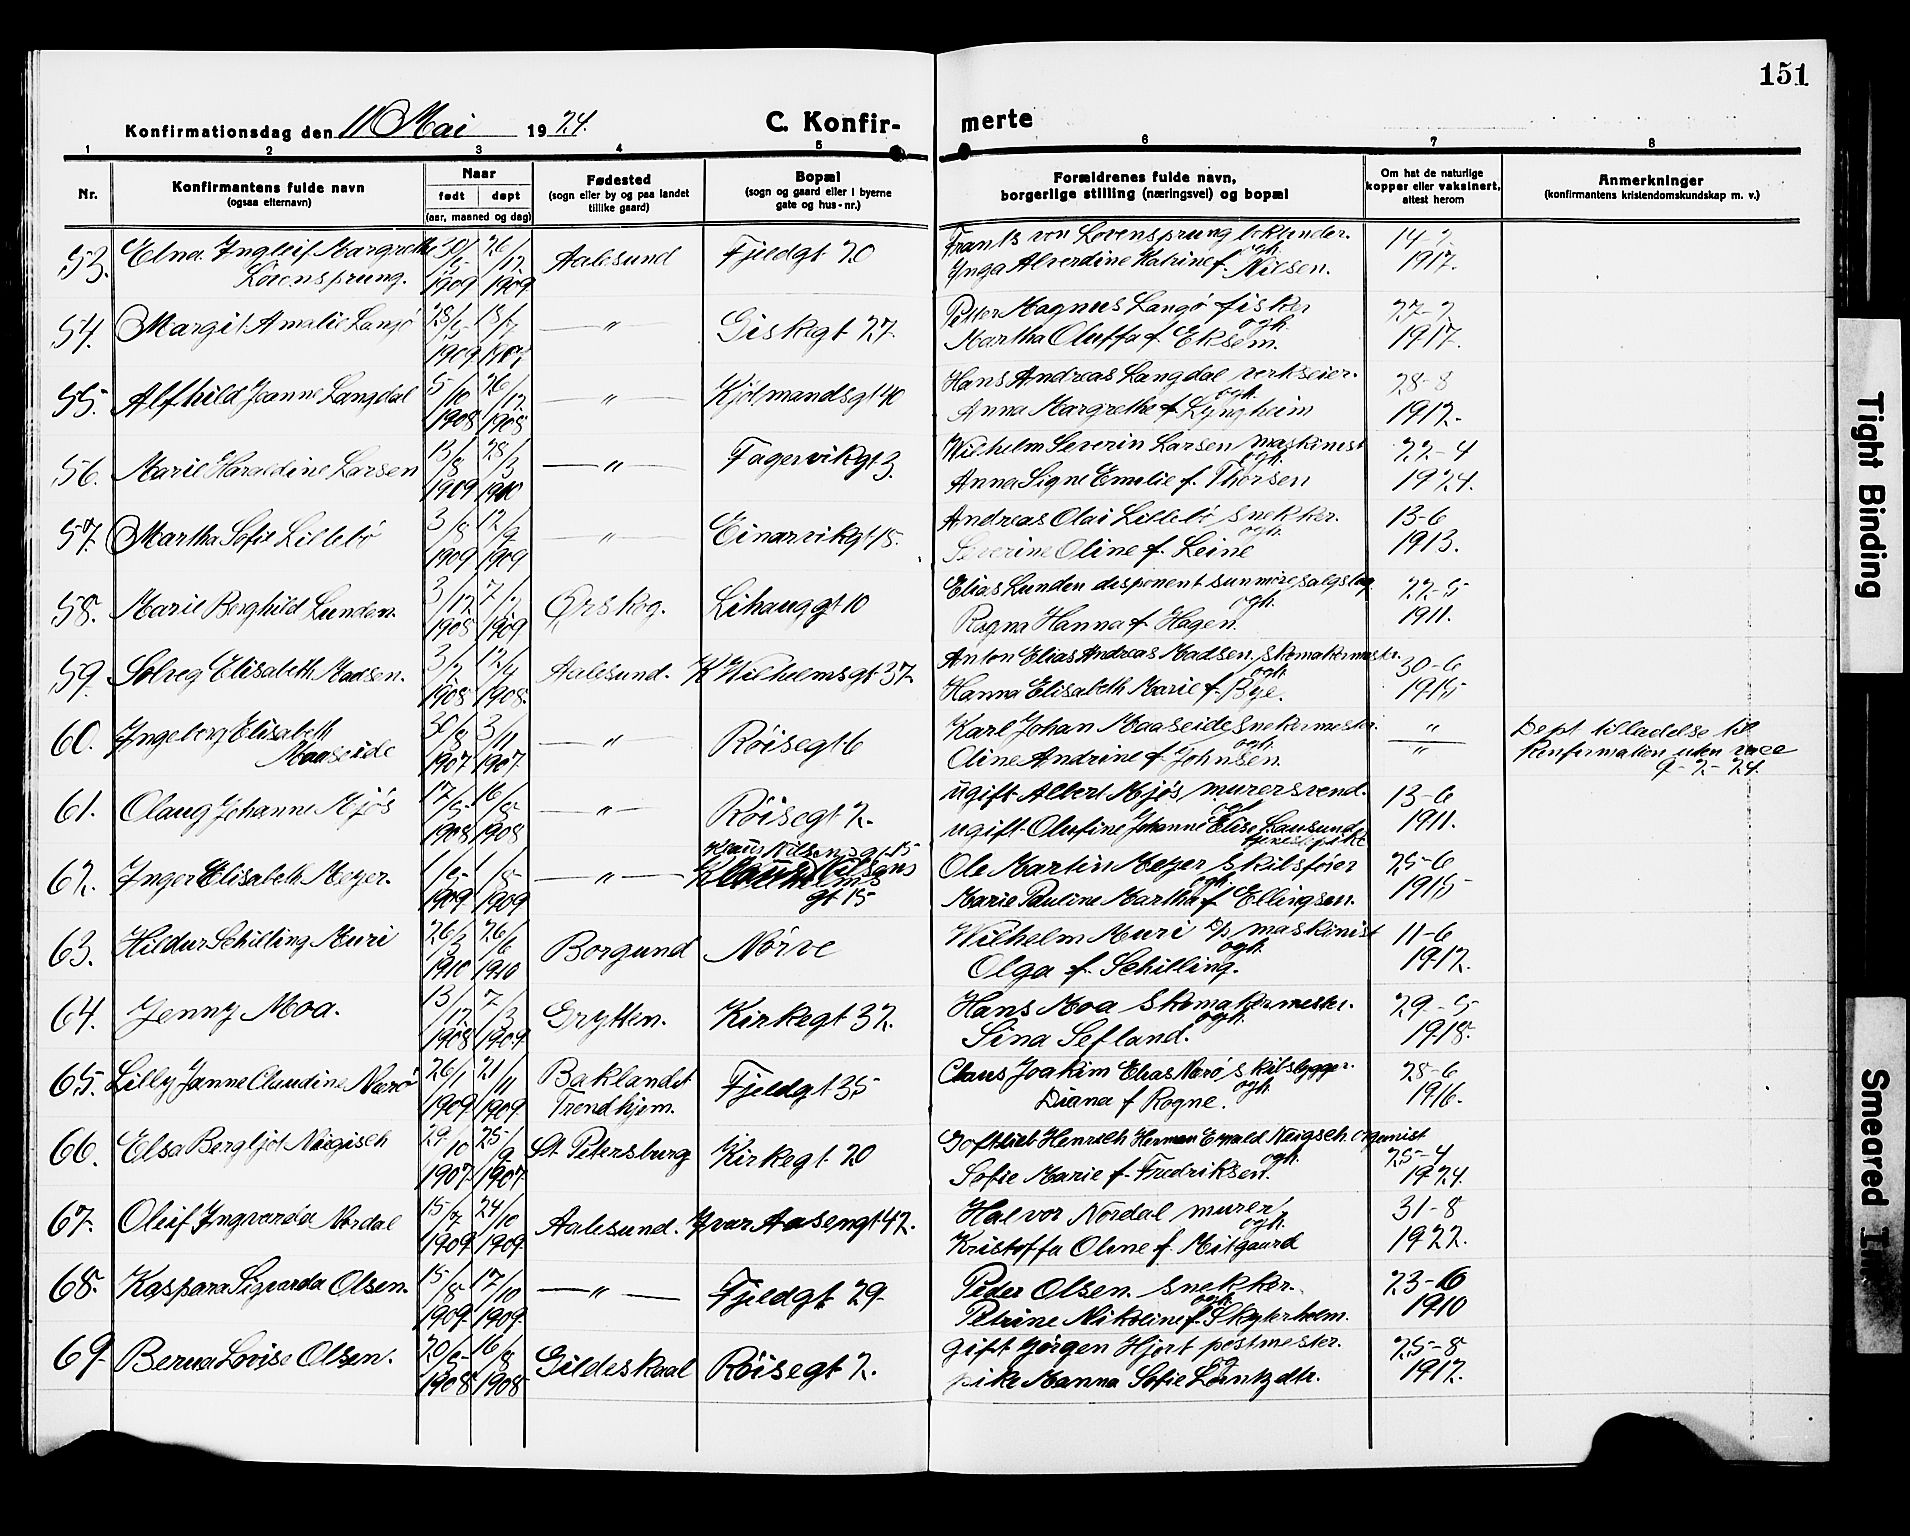 151
Konfirmationsdag den 11 Mai 1924.
C. Konfir-merte
1 2 3 4 5 6 7 8
Nr.
Konfirmantens fulde navn
(ogsaa efternavn)
Naar
født døpt
(aar, maaned og dag)
Fødested
(sogn eller by og paa landet
tillike gaard)
Bopæl
(sogn og gaard eller i byerne
gate og hus-nr.)
Forældrenes fulde navn,
borgerlige stilling (næringsvei) og bopæl
Om hat de naturlige
kopper eller vaksinert,
attest herom
Anmerkninger
(konfirmantens kristendomskundskap m. v.)
53. Elna Ingleif Margrethe 30/ 26/12 Aalesund Fjeldgt 20 Frants von Lovensprung 14-2
Lövensprung. 1909 1909 ogh. Inga Alverdine Katrine f. Nilsen. 1917.
54. Margit Amalie Langö — " — Giskegt 27. Petter Magnus Langö fisker 27-2
1909 1909 ogh. Martha Oluffa f. Eksem. 1917.
55. Alfhild Joanne Langdal 5/10 26/12 — " — Kjöpmandsgt 40 Hans Andreas Langdal verkseier. 28-8
1908 1908 ogh. Anna Margrethe f. Lyngheim 1912.
56. Marie Haraldine Larsen 13/8 28/3 — " — Fagervikgt 3. Wilhelm Severin Larsen maskinist 22-4
1909 1910 ogh. Anna Signe Emelie f. Thorsen 1924.
57. Martha Sofie Lillebö 3/8 12/9 — " — Einarvikgt 15. Andreas Olai Lillebö snekker. 13-6
1909 1909 ogh. Severine Oline f. Leine 1913.
58. Marie Berghild Lunden. 3/12 7/2 Ørskog. Lihauggt 10 Elias Lunden disponent sunmöre salgslag 22-5
1908 1909 ogh. Ragna Hanna f. Hagen. 1911.
59. Solveg Elisabeth Madsen. 3/2 12/4 Aalesund. K Wilhelmsgt 37 Anton Elias Andreas Madsen, skomakermester. 30-6
1908 1908. ogh. Hanna Elisabeth Marie f. Bye. 1915
60. Ingeborg Elisabeth 30/8 3/11 — " — Röisegt 6 Karl Johan Maaseide snekermester. " Dept tilladelse til
Maaseide 1907 1907 ogh. Oline Andrine f. Johnsen. " Konfirmation uten vacc
9-2-24.
61. Olaug Johanne Mjös 17/5 16/8 — " — Röisegt 2. ugift Albert Mjös murersvend. 13-6
1908 1908 og ugift Olufine Johanne Elise Lausund 1911.
tjenestepike
62. Inger Elisabeth Meyer. 1/5 1/8 — " — Klaus Nilsensgt 15 Ole Martin Meyer skibsfører 25-6
1909 1909 gt 15 ogh. Marie Pauline Martha f. Ellingsen. 1915
63. Hildur Schilling Muri 26/3 26/6 Borgund Nörve Wilhelm Muri D/p maskinist 11-6
1910 1910 ogh. Olga f. Schilling. 1912.
64. Jenny Moa. 13/12 7/3 Grytten. Kirkegt 32. Hans Moa Skomakermester. 29-5
1908 1909 ogh. Sina Sefland. 1918.
65. Lilly Janne Claudine Nærö 26/1 21/11 Baklandet Fjeldgt 35 Claus Joakim Elias Nærö skibsbygger. 28-6
1909 1909 Trondhjem. ogh. Diana f Rogne. 1916.
66. Elsa Bergljot Neigisch 29/10 25/9 St. Petersburg Kirkegt 20 Gottlieb Henrich Herman Ewald Neigsch organist
25-4
1907 1907 ogh. Sofie Marie f. Fredriksen. 1924.
67. Oleif Ingvarda Nordal 15/7 24/10 Aalesund. Ivar Aasengt 42. Halvor Nordal murer 31-8
1909 1909. ogh. Kristoffa Oline f. Mitgaard 1922.
68. Kaspara Sigvarda Olsen. 15/8 17/10 — " — Fjeldgt 29 Peder Olsen snekker. 23-6
1909 1909. ogh. Petrine Nikoline f. Skyterholm. 1910
69. Berna Lovise Olsen. 20/5 16/8 Gildeskaal Röisegt 2. gift Jörgen Hjort postmester. 25-8
1908 1908 og pike Manna Sofie Lorntzdtr. 1912.
Tight Binding
Smeared Ink